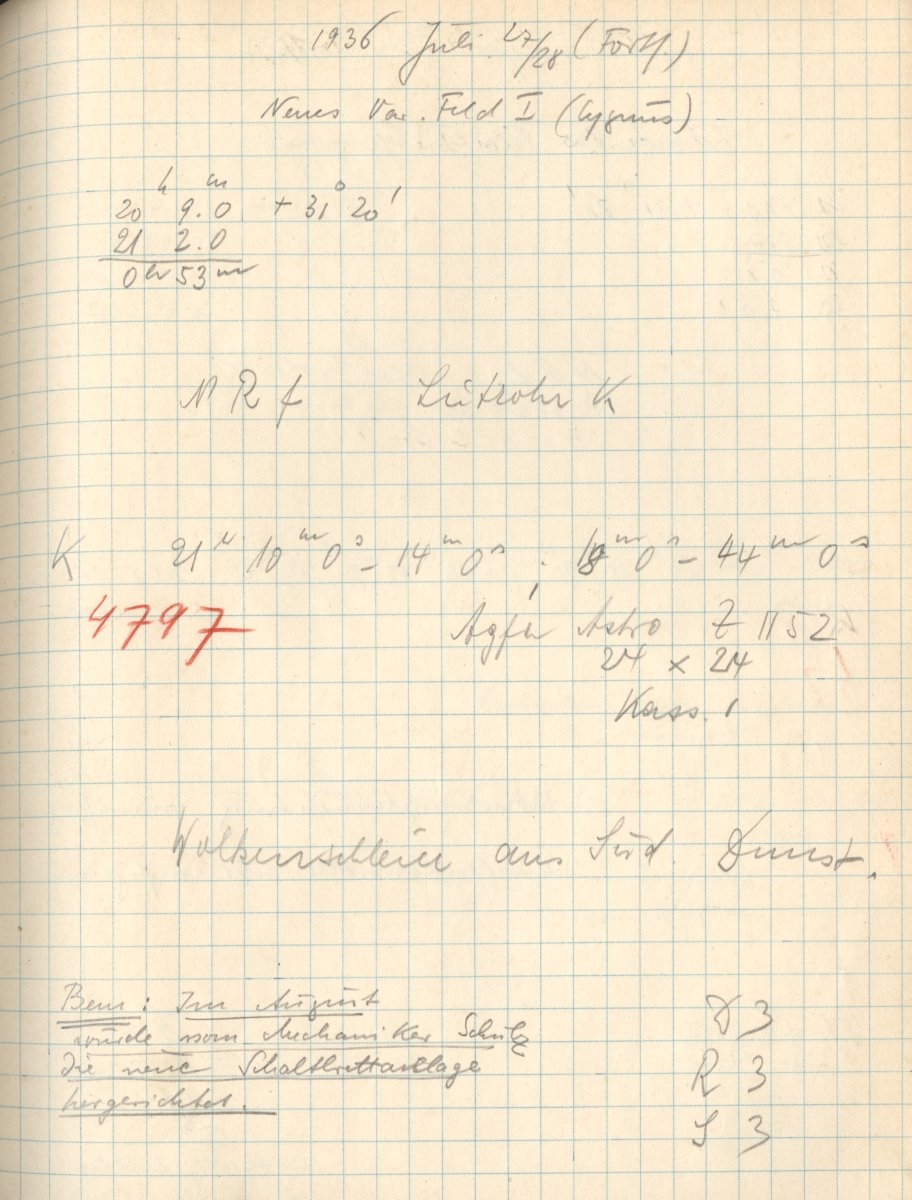 1936 Juli 27/28 (Forts)
Neues Var. Feld I (Cygnus)
20h 9.m0 + 31° 20'
21 2.0
0h 53m
N R f Leitrohr K
K 21h 10m 0s – 14m 0s ; 18m 0s – 44m 0s
4797 Agfa Astro Z 1152
24 x 24
Kass. 1
Wolkenschleier aus Süd. Dunst.
Bem: Im August
wurde vom Mechaniker Schulz
die neue Schaltbrettanlage
hergerichtet.
D 3
R 3
S 3